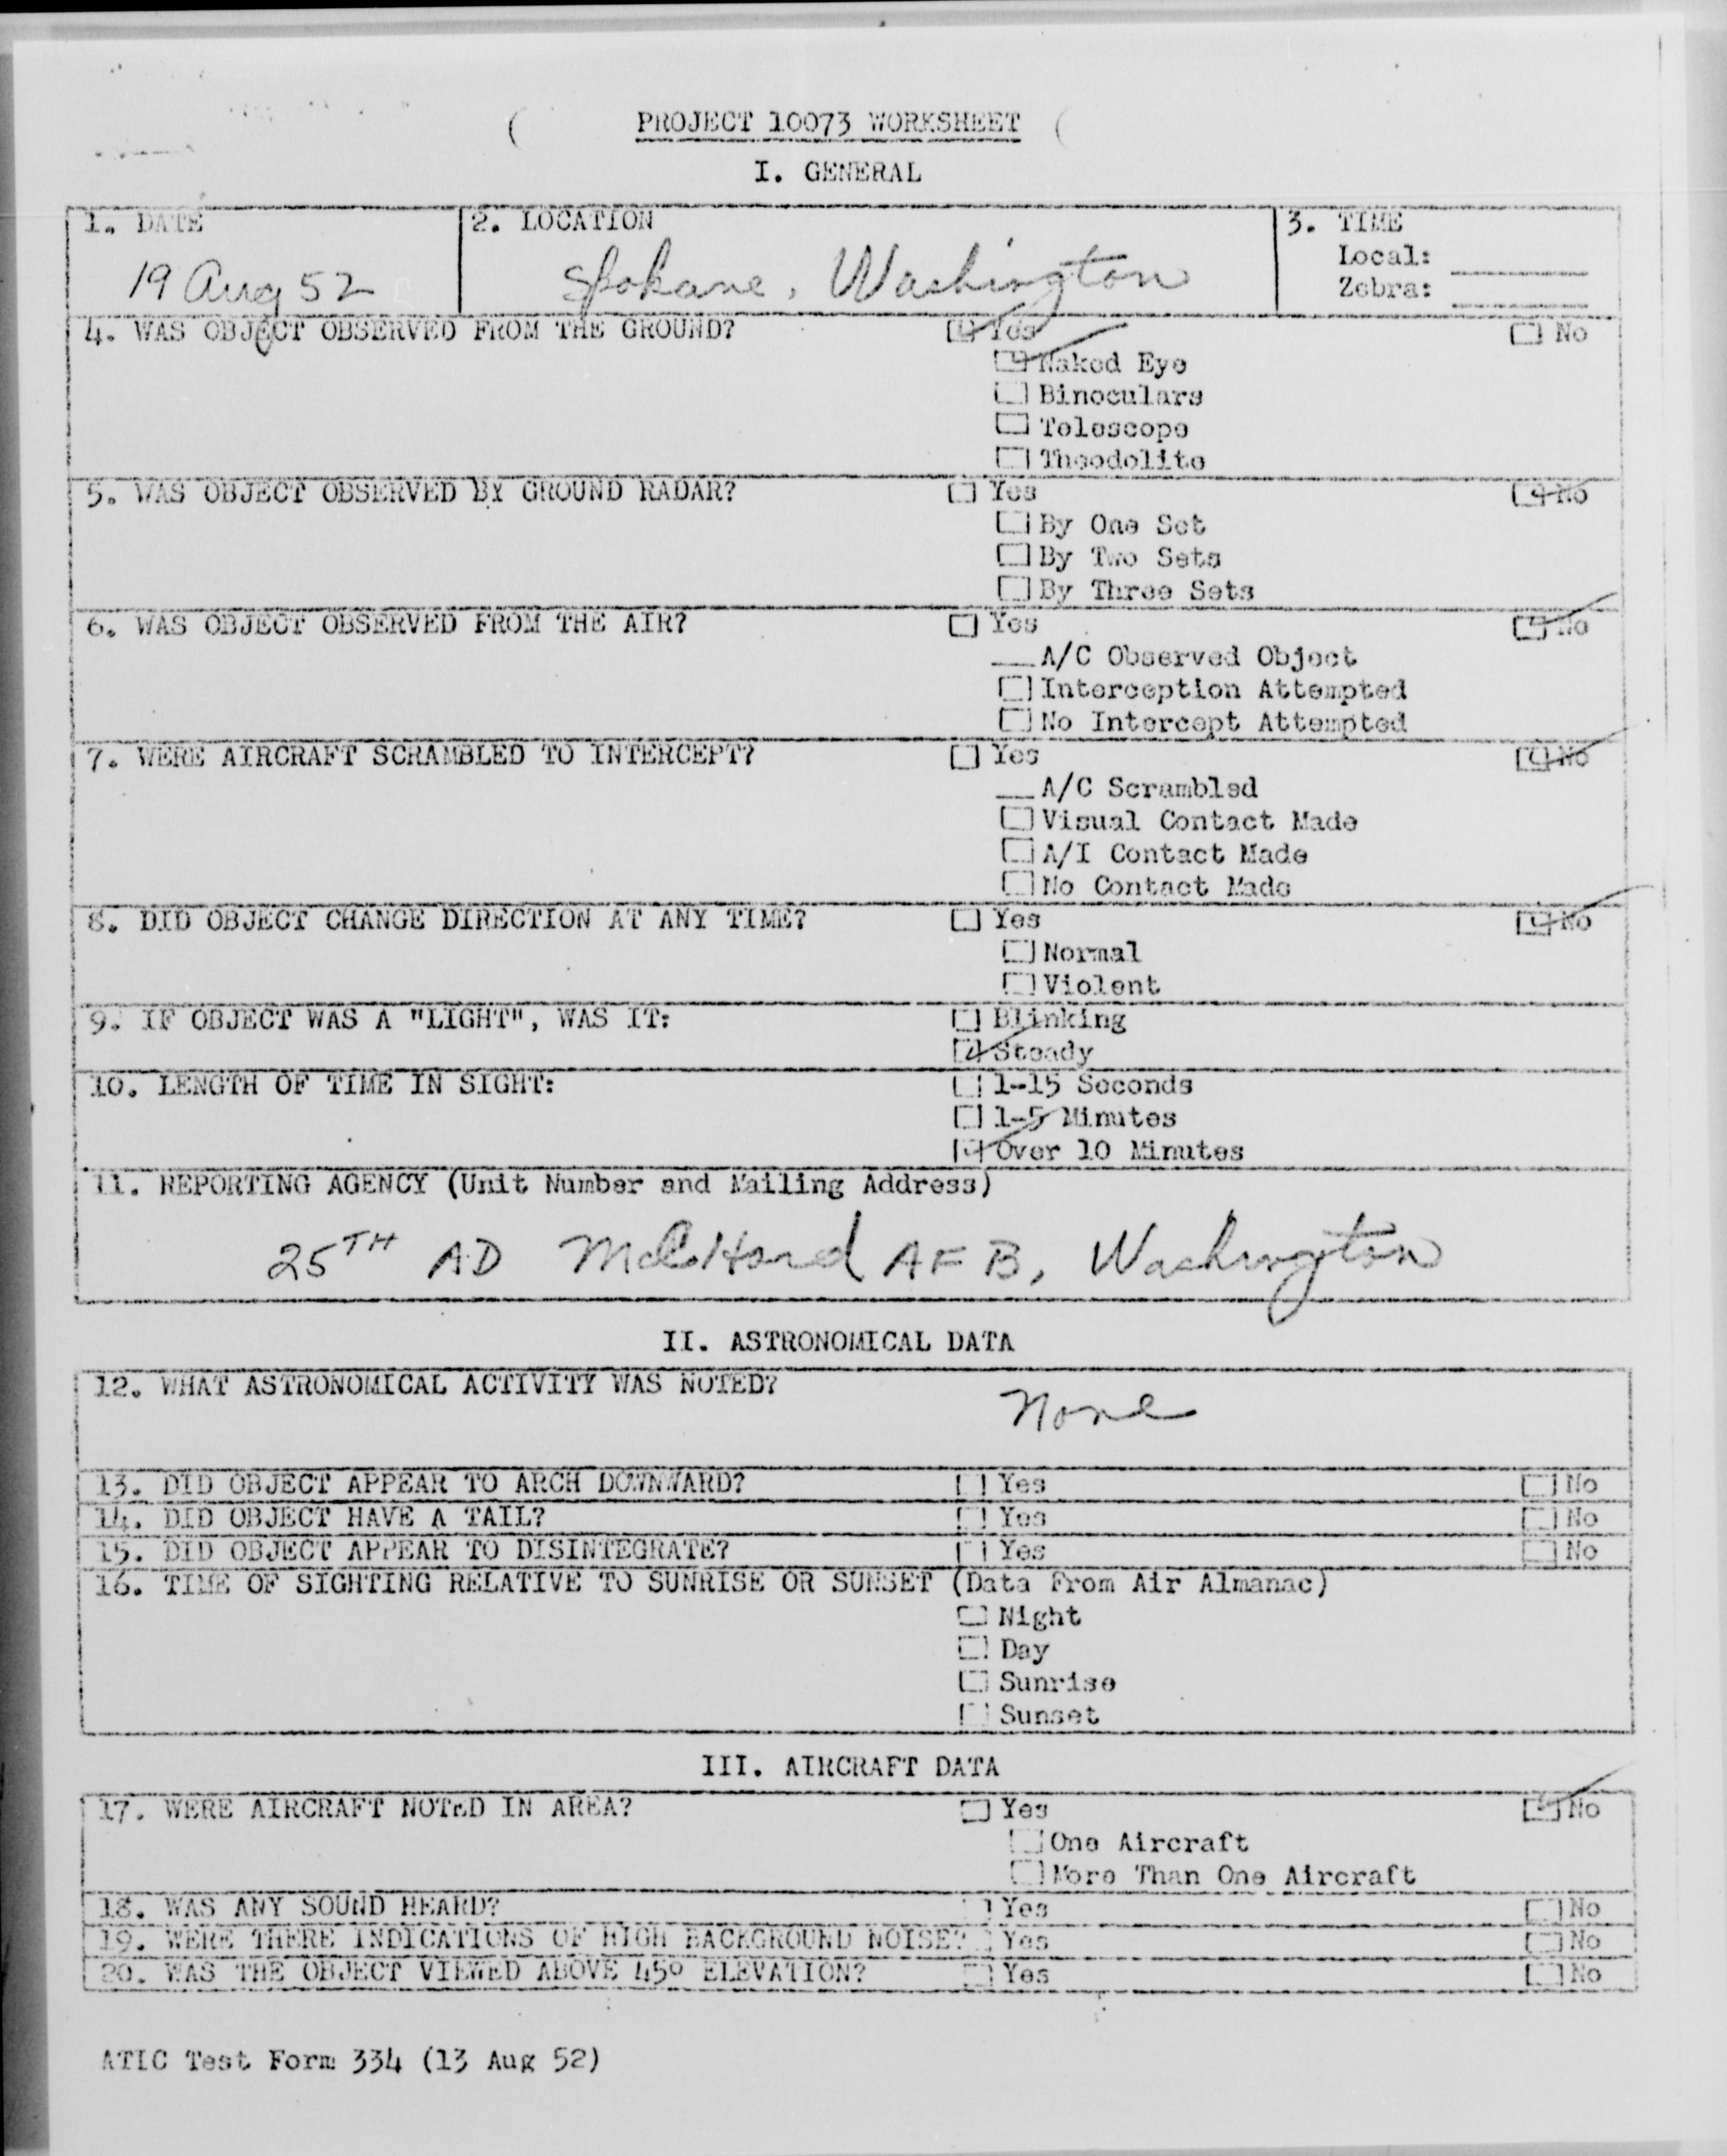 PROJECT 10073 WORKSHEET
I. GENERAL
1. DATE
19 Aug 52
2. LOCATION
Spokane, Washington
3. TIME
Local:
Zebra:
4. WAS OBJECT OBSERVED FROM THE GROUND? Yes No
Naked Eye
Binoculars
Telescope
Theodolite
5. WAS OBJECT OBSERVED BY GROUND RADAR? Yes No
By One Set
By Two Sets
By Three Sets
6. WAS OBJECT OBSERVED FROM THE AIR? Yes No
A/C Observed Object
Interception Attempted
No Intercept Attempted
7. WERE AIRCRAFT SCRAMBLED TO INTERCEPT? Yes No
A/C Scrambled
Visual Contact Made
A/I Contact Made
No Contact Made
8. DID OBJECT CHANGE DIRECTION AT ANY TIME? Yes No
Normal
Violent
9. IF OBJECT WAS A "LIGHT", WAS IT: Blinking
Steady
10. LENGTH OF TIME IN SIGHT: 1-15 Seconds
1-5 Minutes
Over 10 Minutes
11. REPORTING AGENCY (Unit Number and Mailing Address)
25TH AD McChord AFB, Washington
II. ASTRONOMICAL DATA
12. WHAT ASTRONOMICAL ACTIVITY WAS NOTED?
None
13. DID OBJECT APPEAR TO ARCH DOWNWARD? Yes No
14. DID OBJECT HAVE A TAIL? Yes No
15. DID OBJECT APPEAR TO DISINTEGRATE? Yes No
16. TIME OF SIGHTING RELATIVE TO SUNRISE OR SUNSET (Data From Air Almanac)
Night
Day
Sunrise
Sunset
III. AIRCRAFT DATA
17. WERE AIRCRAFT NOTED IN AREA? Yes No
One Aircraft
More Than One Aircraft
18. WAS ANY SOUND HEARD? Yes No
19. WERE THERE INDICATIONS OF HIGH BACKGROUND NOISE? Yes No
20. WAS THE OBJECT VIEWED ABOVE 45° ELEVATION? Yes No
ATIC Test Form 334 (13 Aug 52)